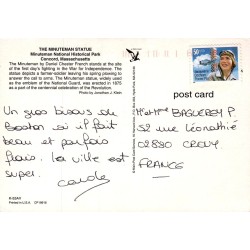 THE MINUTEMAN STATUE
Minuteman National Historical Park
Concord, Massachusetts
The Minuteman by Daniel Chester French stands at the site
of the first day's fighting in the War for Independence. The
statue depicts a farmer-soldier leaving his spring plowing to
answer the call to arms. The Minuteman statue, widely used
as the emblem of the National Guard, was erected in 1875
as a part of the centennial celebration of the Revolution.
Photo by Jonathan J. Klein
Un gros bisous de
Boston où il fait
beau et parfois
frais. La ville est
super.
Carole
post card
50
BAGUEREY P.
52 rue Léonathié
02880 CROUY
FRANCE
Printed in U.S.A.